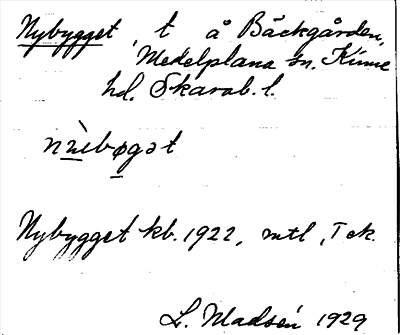 Nybygget, t å Bäckgården,
Medelplana sn. Kinne
hd. Skarab. l.
nỳebøgət
Nybygget kb. 1922, mtl, T ek.
L. Madsén 1929